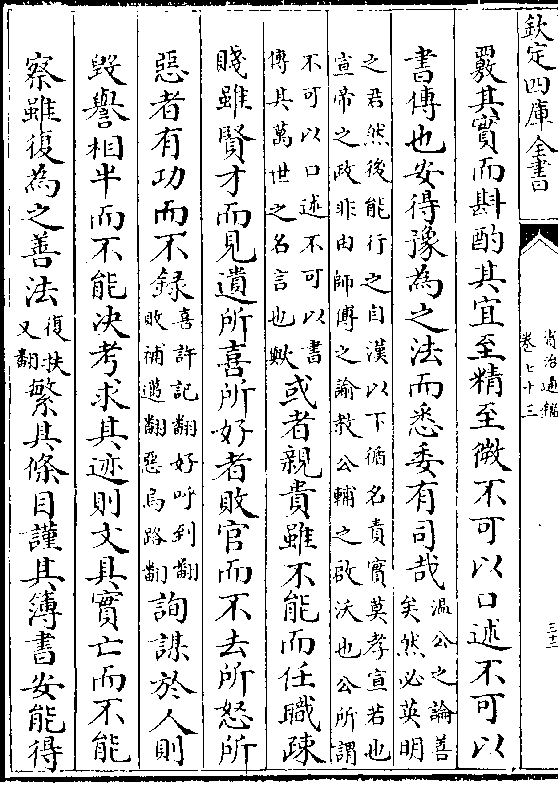 欽定四庫全書
資治通鑑
卷七十三
三十三
覈其實而斟酌其宜至精至微不可以口述不可以
書傳也安得豫為之法而悉委有司哉
溫公之論善
矣然必英明
之君然後能行之自漢以下循名責實莫孝宣若也
宣帝之政非由師傅之諭教公輔之啟沃也公所謂
不可以口述不可以書
傳其萬世之名言也歟
或者親貴雖不能而任職疎
賤雖賢才而見遺所喜所好者敗官而不去所怒所
惡者有功而不錄
喜許記翻好呼到翻
敗補邁翻惡烏路翻
詢謀於人則
毀譽相半而不能决考求其迹則文具實亡而不能
察雖復為之善法
復扶
又翻
繁其條目謹其簿書安能得